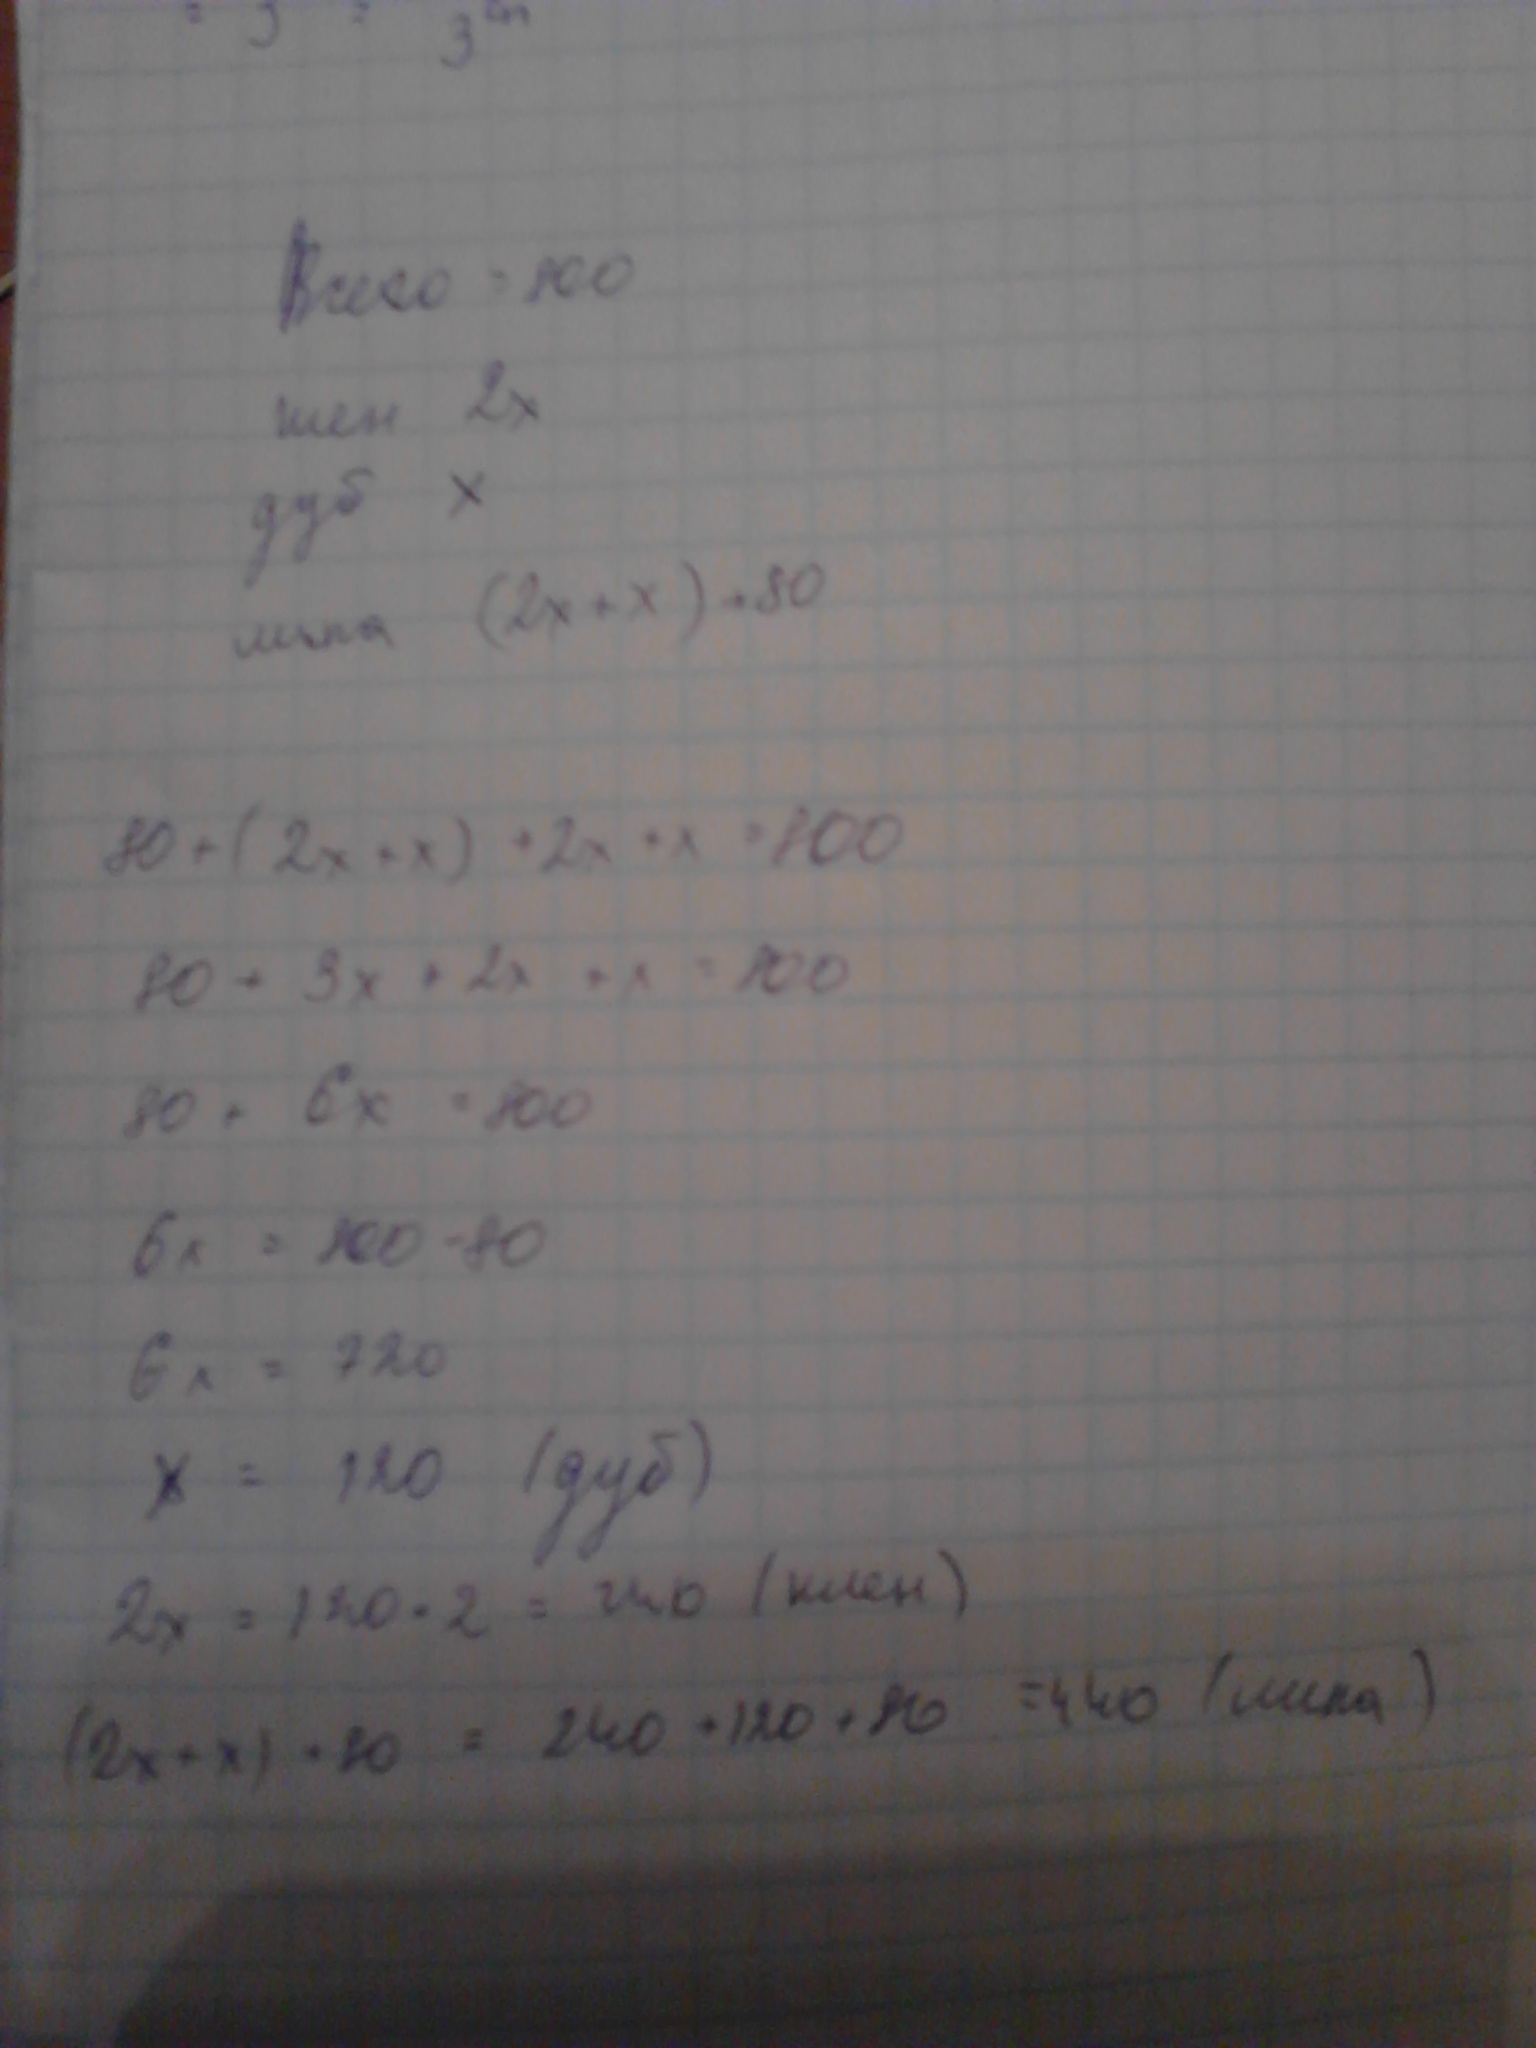 Всего = 800
клен 2х
дуб х
липа (2х+х)+80
80+(2х+х)+2х+х=800
80+3х+2х+х=800
80+6х=800
6х=800-80
6х=720
х=120 (дуб)
2х=120·2=240 (клен)
(2х+х)+80=240+120+80=440 (липа)